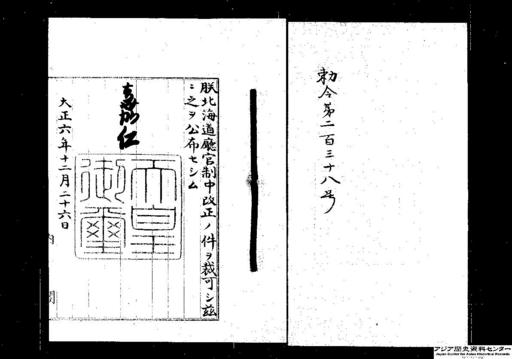 勅令第二百三十八号
朕北海道廳官制中改正ノ件ヲ裁可シ茲
ニ之ヲ公布セシム
嘉仁
天皇御璽
大正六年十二月二十六日
内
閣
アジア歴史資料センター
Japan Center for Asian Historical Records